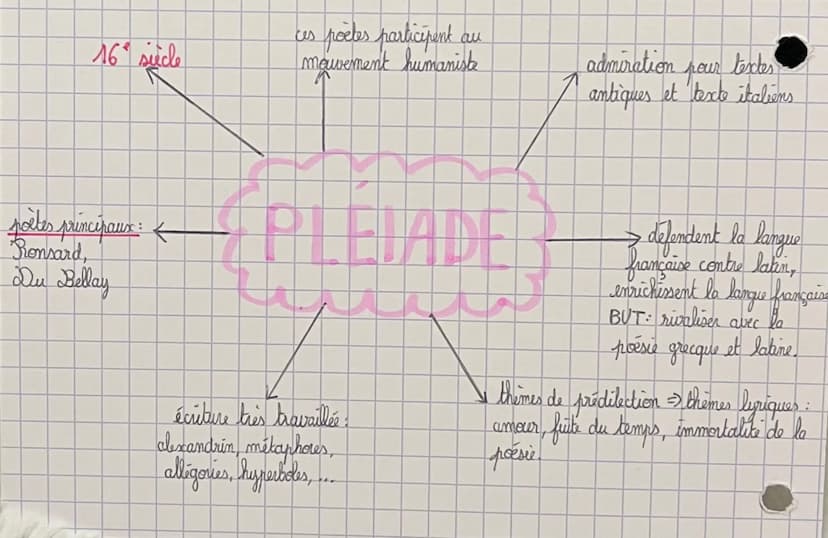 16e siècle
ces poètes participent au
mouvement humaniste
admiration pour textes
antiques et texte italiens
PLÉIADE
poètes principaux :
Ronsard,
Du Bellay
défendent la langue
française contre latin,
enrichissent la langue française
BUT : rivaliser avec la
poésie grecque et latine.
écriture très travaillée :
alexandrin, métaphores,
allégories, hyperboles, ...
thèmes de prédilection ⇒ thèmes lyriques :
amour, fuite du temps, immortalité de la
poésie.